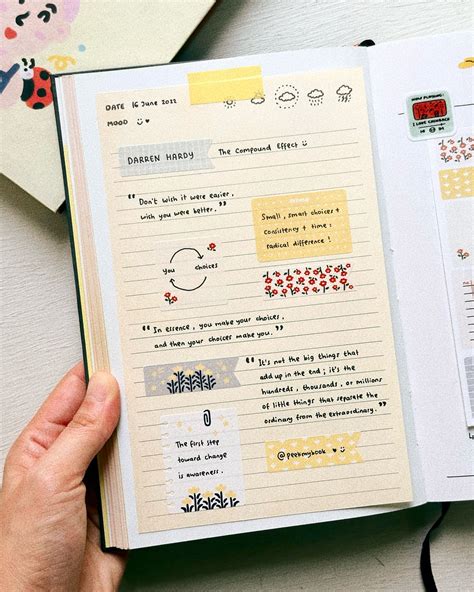 DATE 16 June 2022
MOOD
DARREN HARDY The Compound Effect
"Don't wish it were easier,
wish you were better."
Small, smart choices +
consistency + time =
radical difference!
You choices
"In essence, you make your choices,
and then your choices make you."
"It's not the big things that
add up in the end; it's the
hundreds, thousands, or millions
of little things that separate the
ordinary from the extraordinary."
The first step
toward change
is awareness.
@peekmybook